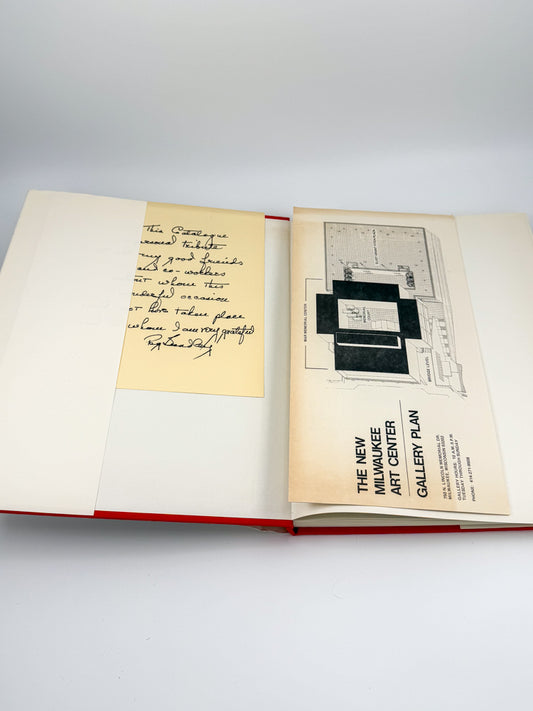 This Catalogue
tribute
my good friends
and co-workers
whom this
occasion
have taken place
whom I am very grateful
THE NEW
MILWAUKEE
ART CENTER
GALLERY PLAN
750 N. LINCOLN MEMORIAL DR.
MILWAUKEE, WISCONSIN 53202
GALLERY HOURS: 10 A.M.-5 P.M.
TUESDAY THROUGH SUNDAY
PHONE: 414 271-9508
WAR MEMORIAL CENTER
BRIDGE LEVEL